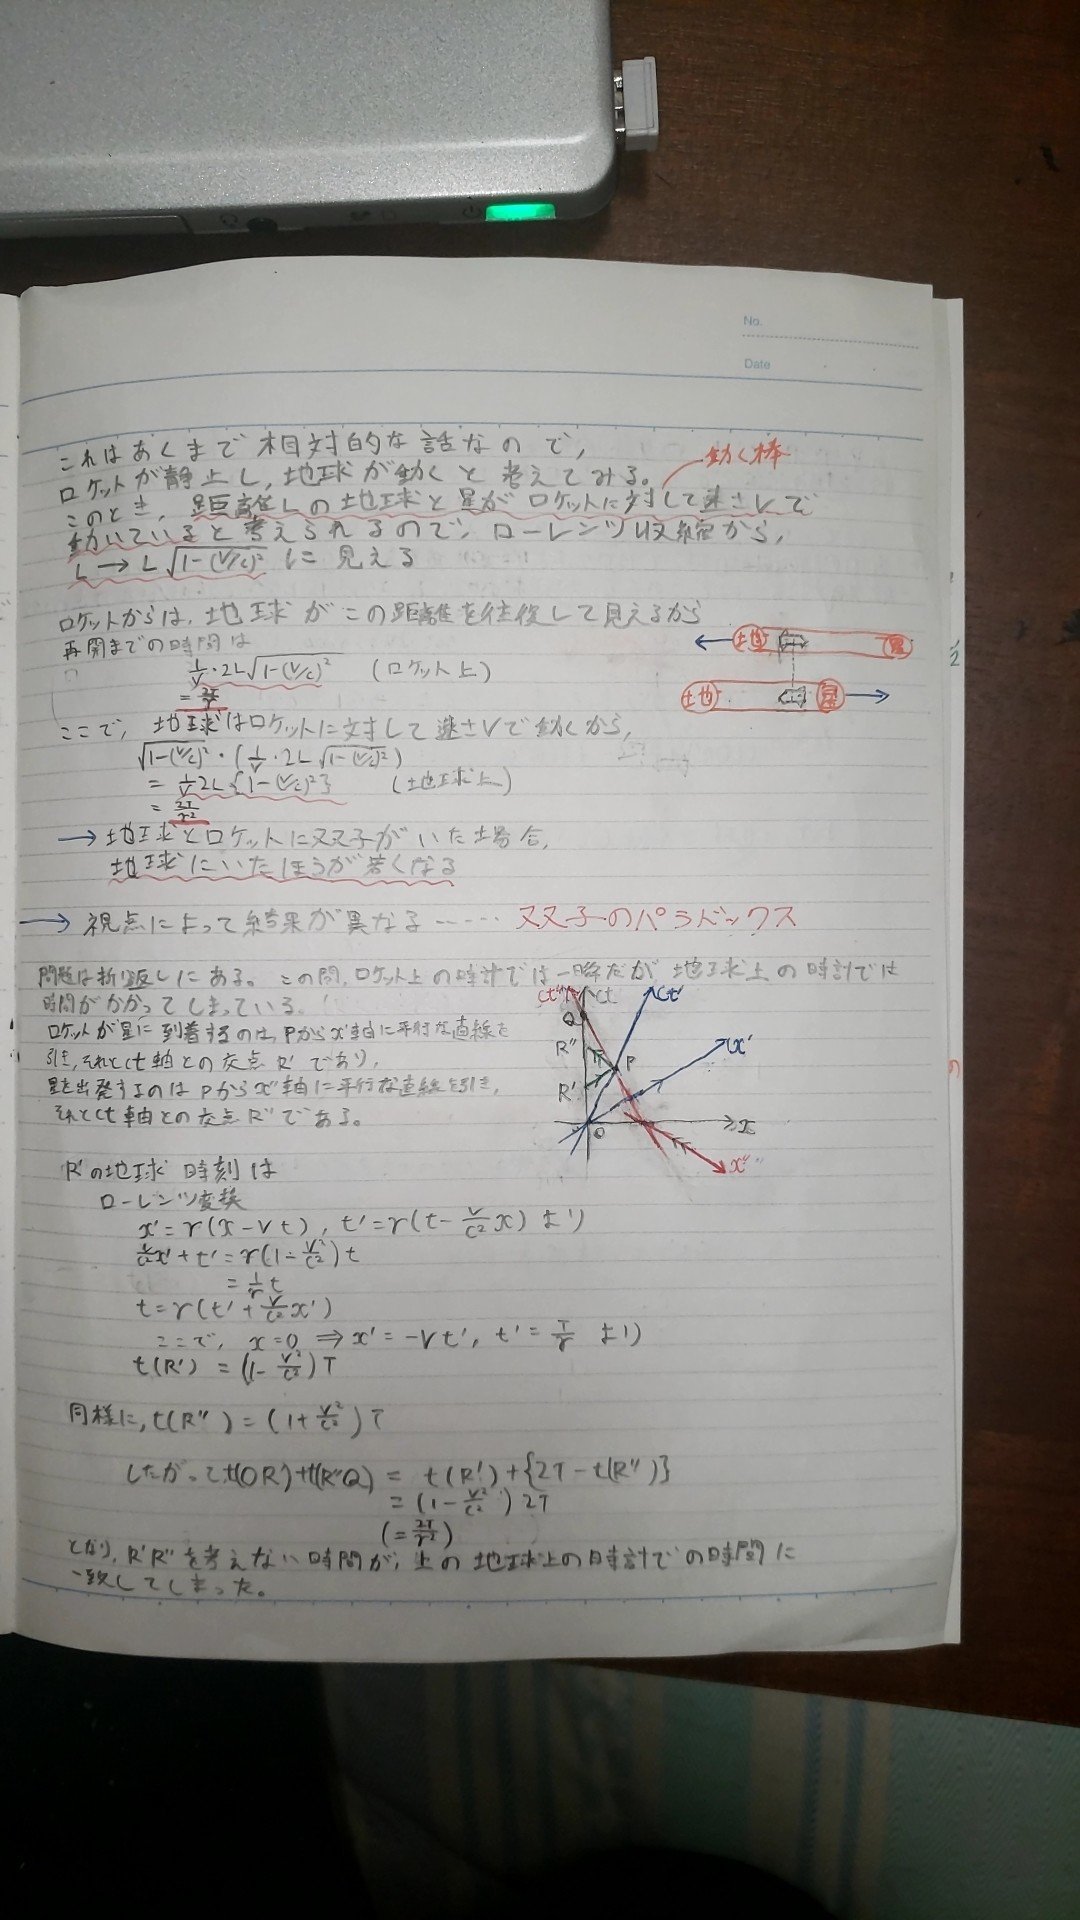 No.
Date
これはあくまで相対的な話なので,
ロケットが静止し,地球が動くと考えてみる。
動く棒
このとき,距離Lの地球と星がロケットに対して速さVで
動いていると考えられるので,ローレンツ収縮から,
L→L√1-(V/c)² に見える
ロケットからは,地球がこの距離を往復して見えるから
再開までの時間は
1/V・2L√1-(V/c)² (ロケット上)
= 2T/γ
地 星
地 星
ここで,地球はロケットに対して速さVで動くから,
√1-(V/c)²・(1/V・2L√1-(V/c)²)
= 1/V 2L{1-(V/c)²} (地球上)
= 2T/γ²
→地球とロケットに双子がいた場合,
地球にいたほうが若くなる
→ 視点によって結果が異なる …… 双子のパラドックス
問題は折り返しにある。この間,ロケット上の時計では一瞬だが 地球上の時計では
時間がかかってしまっている。
ロケットが星に到着するのは,Pからx'軸に平行な直線を
引き,それとct軸との交点R'であり,
星を出発するのはPからx''軸に平行な直線を引き,
それとct軸との交点R''である。
ct'' ct ct'
Q
R'' P x'
R'
O x
x''
R'の地球時刻は
ローレンツ変換
x'=γ(x-Vt), t'=γ(t-V/c² x) より
V/c² x'+t'=γ(1-V²/c²)t
= 1/γ t
t=γ(t'+V/c² x')
ここで, x=0 ⇒ x'=-Vt', t'=T/γ より
t(R') = (1-V²/c²)T
同様に,t(R'')=(1+V²/c²)T
したがって,t(OR')+t(R''Q) = t(R')+{2T-t(R'')}
= (1-V²/c²)2T
(=2T/γ²)
となり,R'R''を考えない時間が,上の地球上の時計での時間に
一致してしまった。